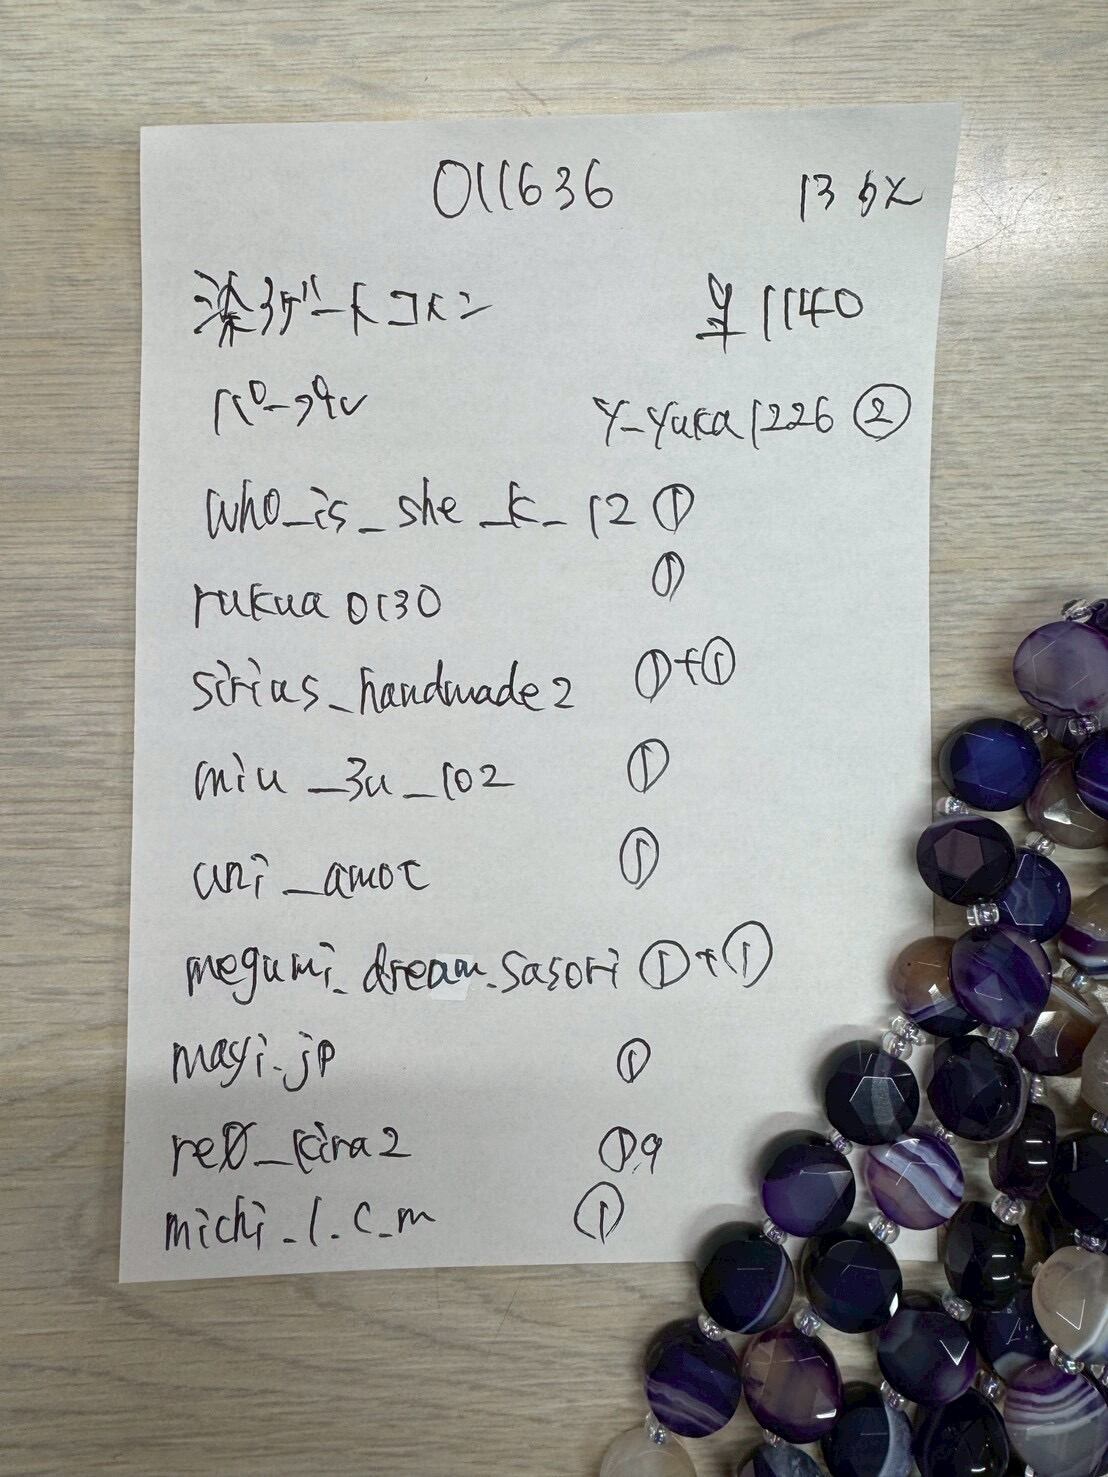 011636 13色
染めゲートコイン ¥1140
パープル y_yuka1226 ②
who_is_she_k_12 ①
rukua0130 ①
sirius_handmade2 ①+①
miu_3u_102 ①
uni_amoc ①
megumi_dream.sasori ①+①
mayi.jp ①
re0_kira2 ①
michi_1.c_m ①